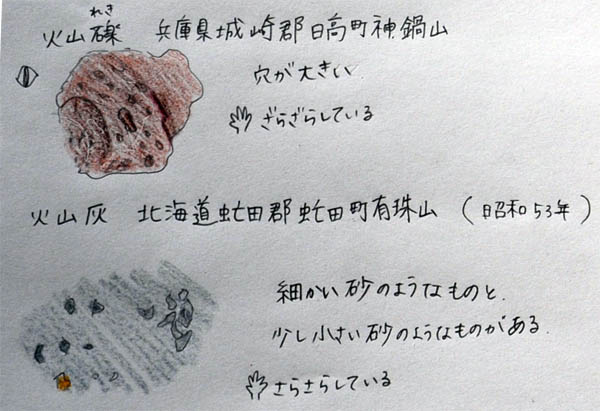 れき
火山礫 兵庫県城崎郡日高町神鍋山
穴が大きい
ざらざらしている
火山灰 北海道虻田郡虻田町有珠山(昭和53年)
細かい砂のようなものと、
少し小さい砂のようなものがある。
さらさらしている